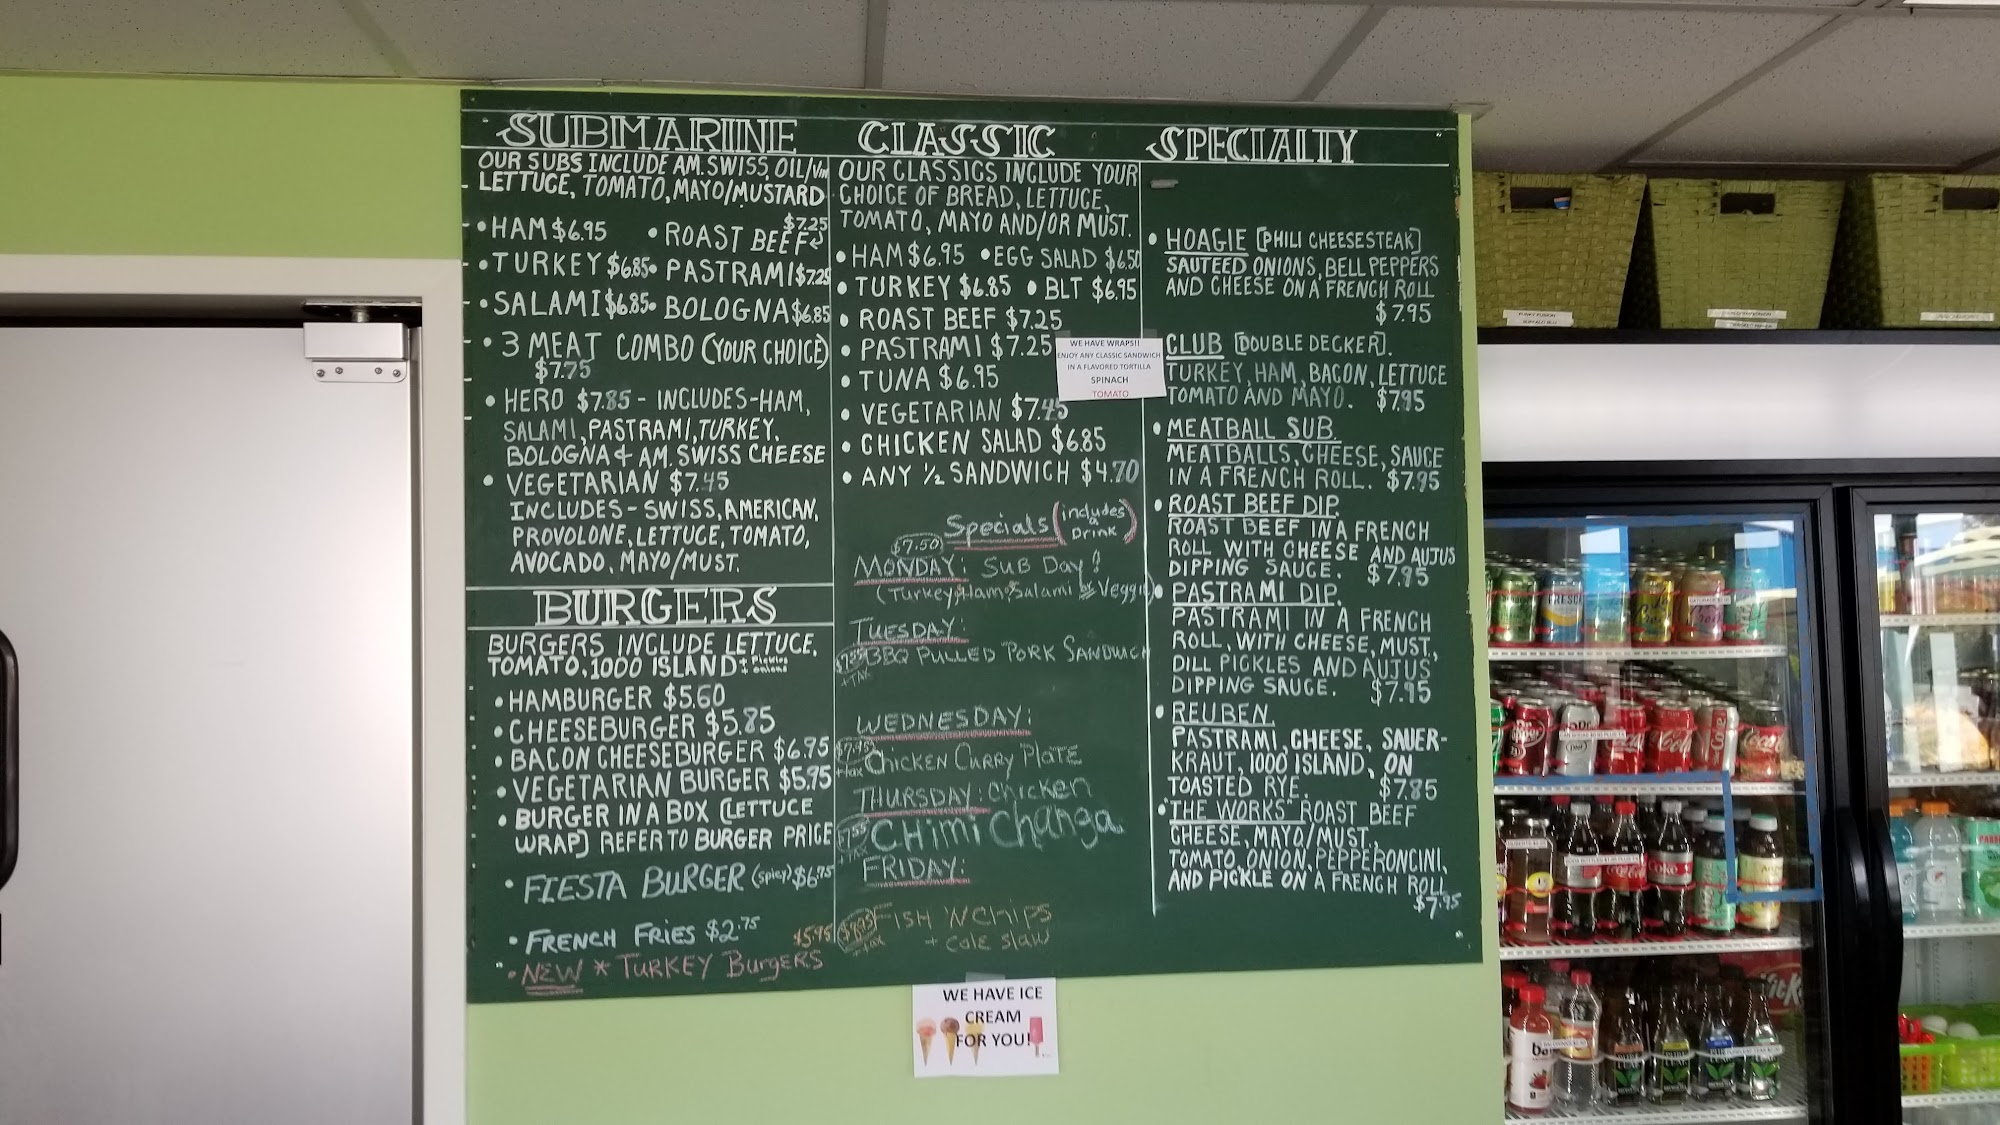 SUBMARINE
OUR SUBS INCLUDE AM. SWISS, OIL/Vin
LETTUCE, TOMATO, MAYO/MUSTARD
• HAM $6.95
• ROAST BEEF $7.25
• TURKEY $6.85
• PASTRAMI $7.25
• SALAMI $6.85
• BOLOGNA $6.85
• 3 MEAT COMBO (YOUR CHOICE)
$7.75
• HERO $7.85 - INCLUDES - HAM,
SALAMI, PASTRAMI, TURKEY,
BOLOGNA & AM. SWISS CHEESE
• VEGETARIAN $7.45
INCLUDES - SWISS, AMERICAN,
PROVOLONE, LETTUCE, TOMATO,
AVOCADO, MAYO/MUST.
BURGERS
BURGERS INCLUDE LETTUCE,
TOMATO, 1000 ISLAND + Pickles
+ onions
• HAMBURGER $5.60
• CHEESEBURGER $5.85
• BACON CHEESEBURGER $6.75
• VEGETARIAN BURGER $5.95
• BURGER IN A BOX [LETTUCE
WRAP] REFER TO BURGER PRICE
• FIESTA BURGER (spicy) $6.75
• FRENCH FRIES $2.75
$5.95
• NEW * TURKEY BURGERS
CLASSIC
OUR CLASSICS INCLUDE YOUR
CHOICE OF BREAD, LETTUCE,
TOMATO, MAYO AND/OR MUST.
• HAM $6.95 • EGG SALAD $6.50
• TURKEY $6.85 • BLT $6.95
• ROAST BEEF $7.25
• PASTRAMI $7.25
• TUNA $6.95
• VEGETARIAN $7.45
• CHICKEN SALAD $6.85
• ANY ½ SANDWICH $4.70
WE HAVE WRAPS!!
ENJOY ANY CLASSIC SANDWICH
IN A FLAVORED TORTILLA
SPINACH
TOMATO
Specials (includes a Drink)
$7.50
MONDAY: SUB DAY!
(Turkey, Ham, Salami or Veggie)
TUESDAY:
BBQ PULLED PORK SANDWICH
+ TAX
WEDNESDAY:
$7.95
+ tax
CHICKEN CURRY PLATE
THURSDAY: CHICKEN
CHIMI CHANGA
+ TAX
FRIDAY:
$8.95
+ tax
FISH 'N CHIPS
+ cole slaw
SPECIALTY
• HOAGIE [PHILI CHEESESTEAK]
SAUTEED ONIONS, BELL PEPPERS
AND CHEESE ON A FRENCH ROLL
$7.95
CLUB [DOUBLE DECKER].
TURKEY, HAM, BACON, LETTUCE
TOMATO AND MAYO. $7.95
• MEATBALL SUB.
MEATBALLS, CHEESE, SAUCE
IN A FRENCH ROLL. $7.95
• ROAST BEEF DIP.
ROAST BEEF IN A FRENCH
ROLL WITH CHEESE AND AUJUS
DIPPING SAUCE. $7.95
• PASTRAMI DIP.
PASTRAMI IN A FRENCH
ROLL, WITH CHEESE, MUST.,
DILL PICKLES AND AUJUS
DIPPING SAUCE. $7.95
• REUBEN.
PASTRAMI, CHEESE, SAUER-
KRAUT, 1000 ISLAND, ON
TOASTED RYE. $7.85
• "THE WORKS" ROAST BEEF
CHEESE, MAYO/MUST.,
TOMATO, ONION, PEPPERONCINI,
AND PICKLE ON A FRENCH ROLL
$7.95
WE HAVE ICE
CREAM
FOR YOU!
FRESCA
Coke